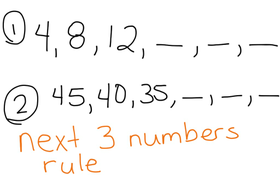 ① 4, 8, 12, __, __, __
② 45, 40, 35, __, __, __
next 3 numbers
rule